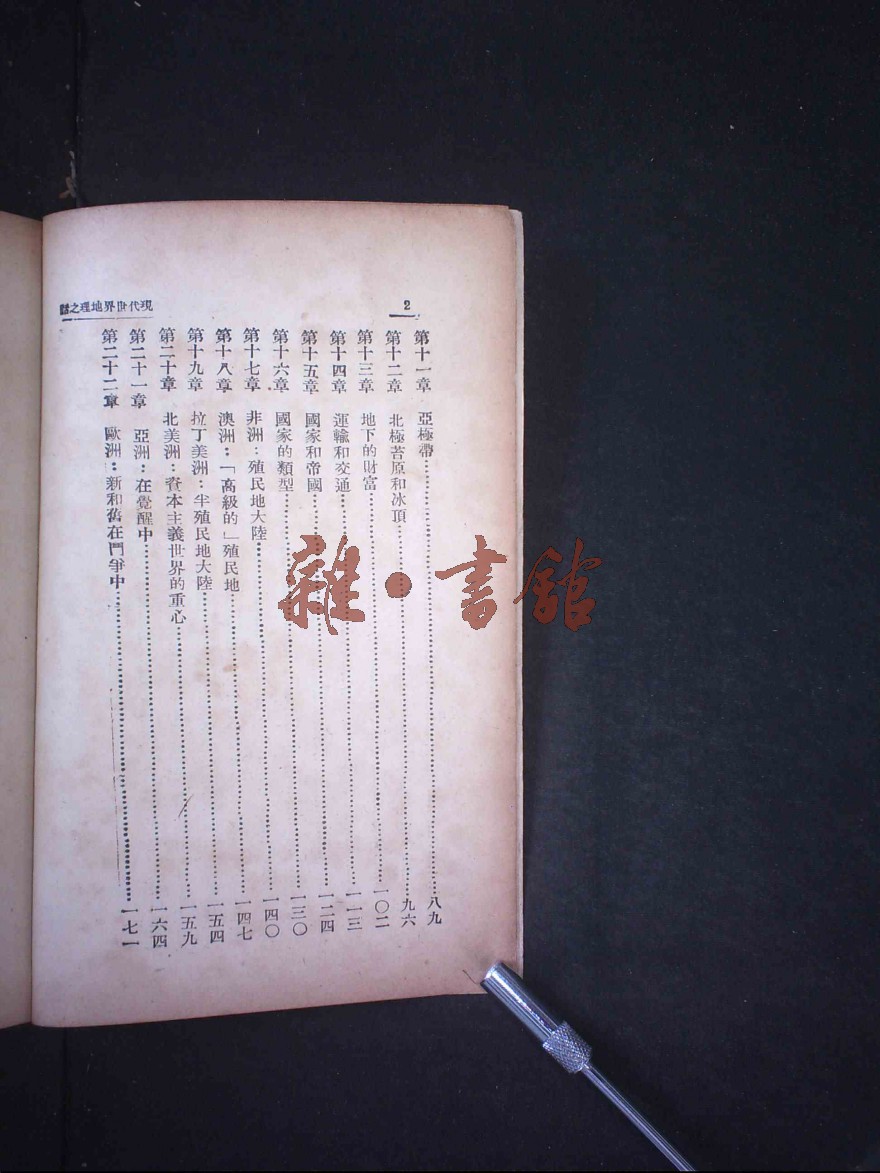 2
現代世界地理之話
第十一章 亞極帶 八九
第十二章 北極苔原和冰頂 九六
第十三章 地下的財富 一〇二
第十四章 運輸和交通 一一三
第十五章 國家和帝國 一二四
第十六章 國家的類型 一三〇
第十七章 非洲：殖民地大陸 一四〇
第十八章 澳洲：「高級的」殖民地 一四七
第十九章 拉丁美洲：半殖民地大陸 一五四
第二十章 北美洲：資本主義世界的重心 一五九
第二十一章 亞洲：在覺醒中 一六四
第二十二章 歐洲：新和舊在鬥爭中 一七一
雜·書館